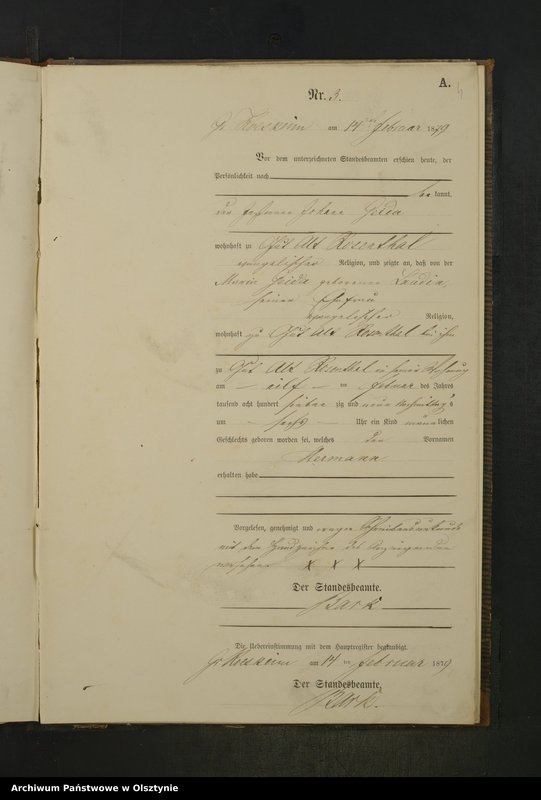 A.
Nr. 3.
am 14ten Februar 1879
Vor dem unterzeichneten Standesbeamten erschien heute, der
Persönlichkeit nach
be kannt,
der Johann
wohnhaft zu Gut Alt Rosenthal
evangelischer Religion, und zeigte an, daß von der
Marie geborene
seiner Ehefrau
evangelischer Religion,
wohnhaft zu Gut Alt Rosenthal bei ihm
zu Gut Alt Rosenthal in seiner Wohnung
am eilf ten Februar des Jahres
tausend acht hundert sieben zig und neun Vormittags
um sechs Uhr ein Kind männlichen
Geschlechts geboren worden sei, welches den Vornamen
Hermann
erhalten habe
Vorgelesen, genehmigt und wegen Schreibensunkunde
mit den Handzeichen des Anzeigenden
versehen X X X
Der Standesbeamte.
Bark
Die Uebereinstimmung mit dem Hauptregister beglaubigt.
am 14 ten Februar 1879
Der Standesbeamte.
Bark.
Archiwum Państwowe w Olsztynie